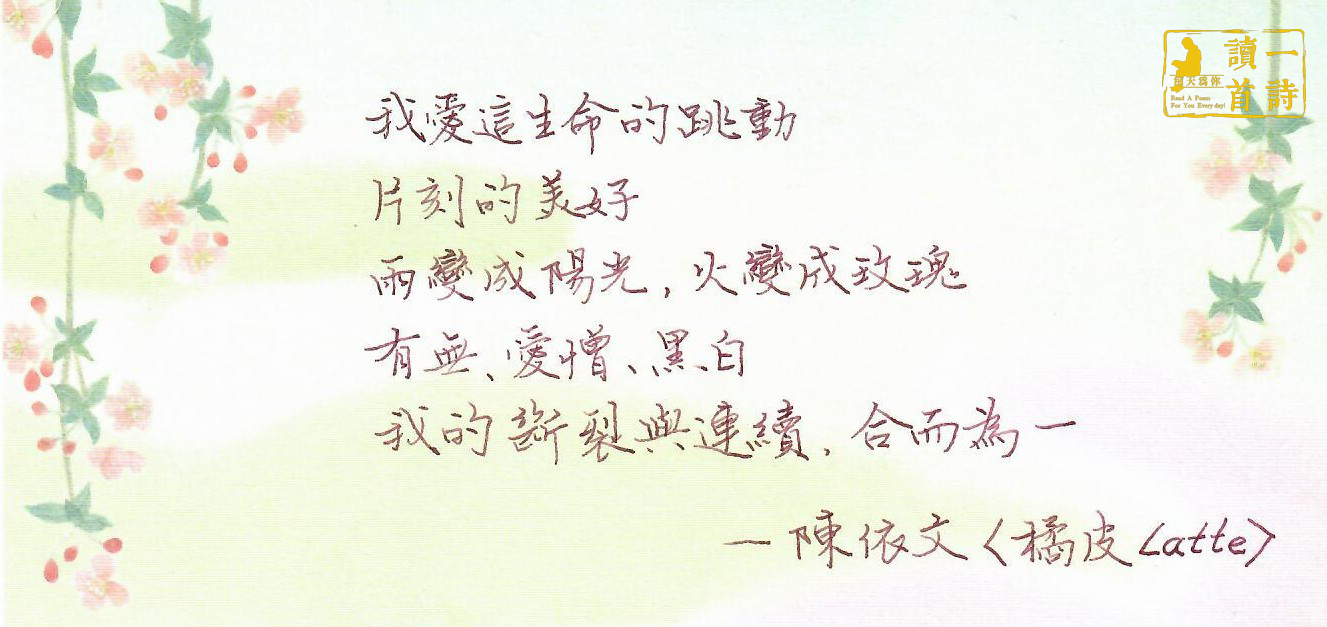 我愛這生命的跳動
片刻的美好
雨變成陽光，火變成玫瑰
有無、愛憎、黑白
我的斷裂與連續，合而為一
—陳依文〈橘皮Latte〉
每天為你
讀一首詩
Read A Poem
For You Everyday!